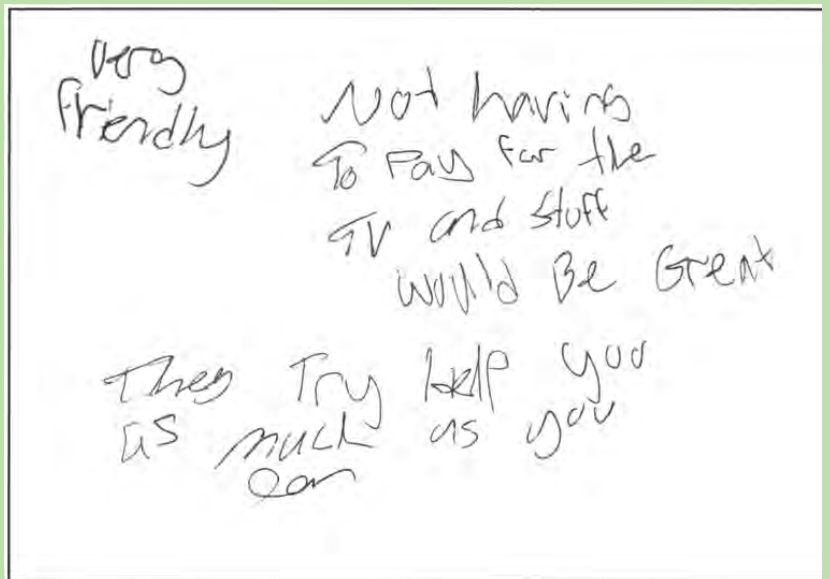 Very
friendly
Not having
To Pay for the
TV and stuff
would Be Great
They Try help you
as much as you
can